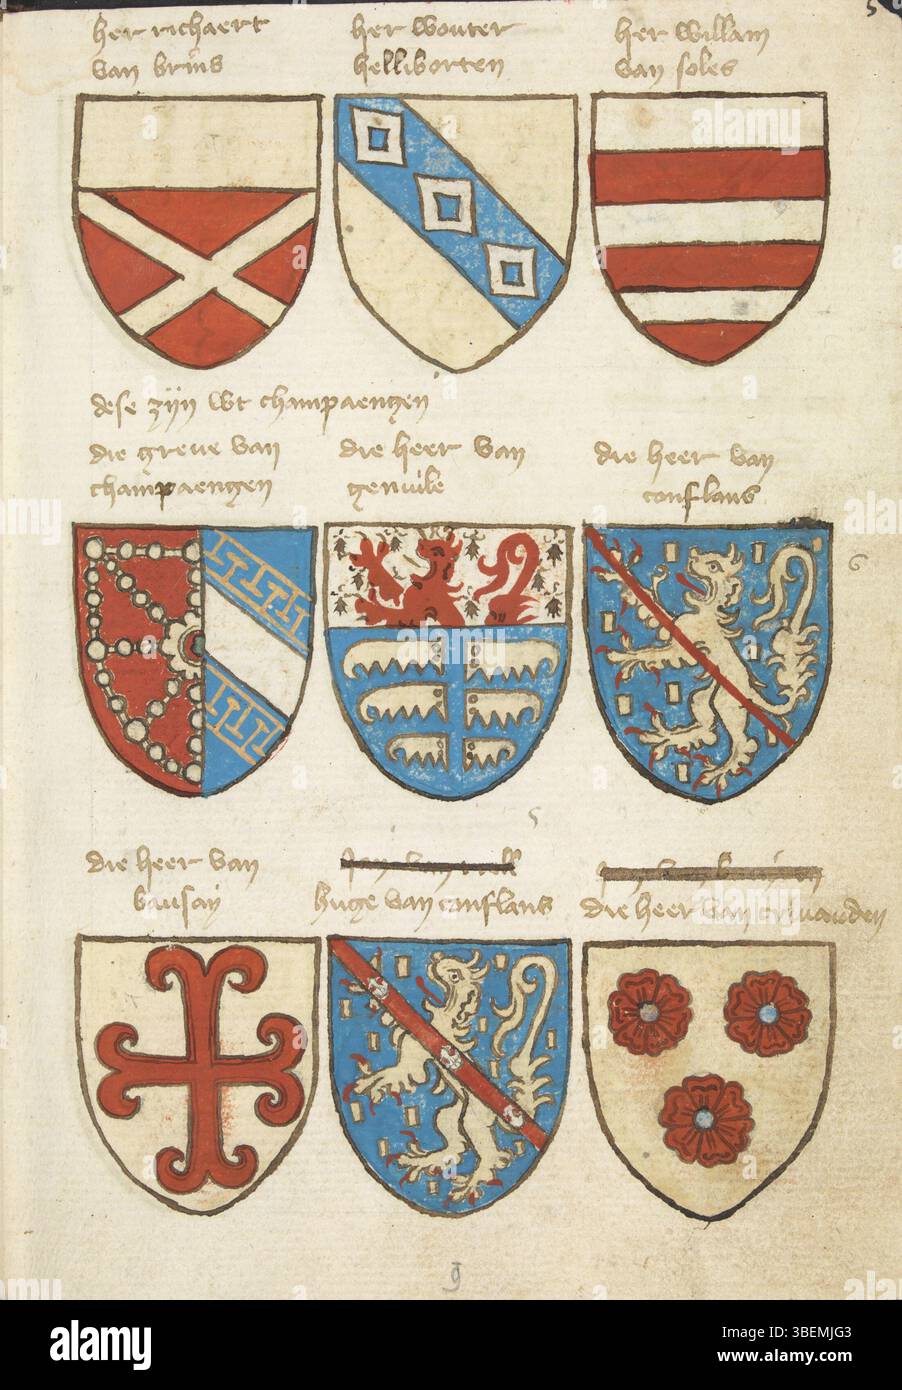 5
her richaert
van brus
her wouter
helliborten
her willam
van soles
dese zijn wt champaengen
die greue van
champaengen
die heer van
genuile
die heer van
conflans
6
5
die heer van
bausay
huge van conflans
die heer van
9
alamy
Image ID: 3BEMJG3
www.alamy.com